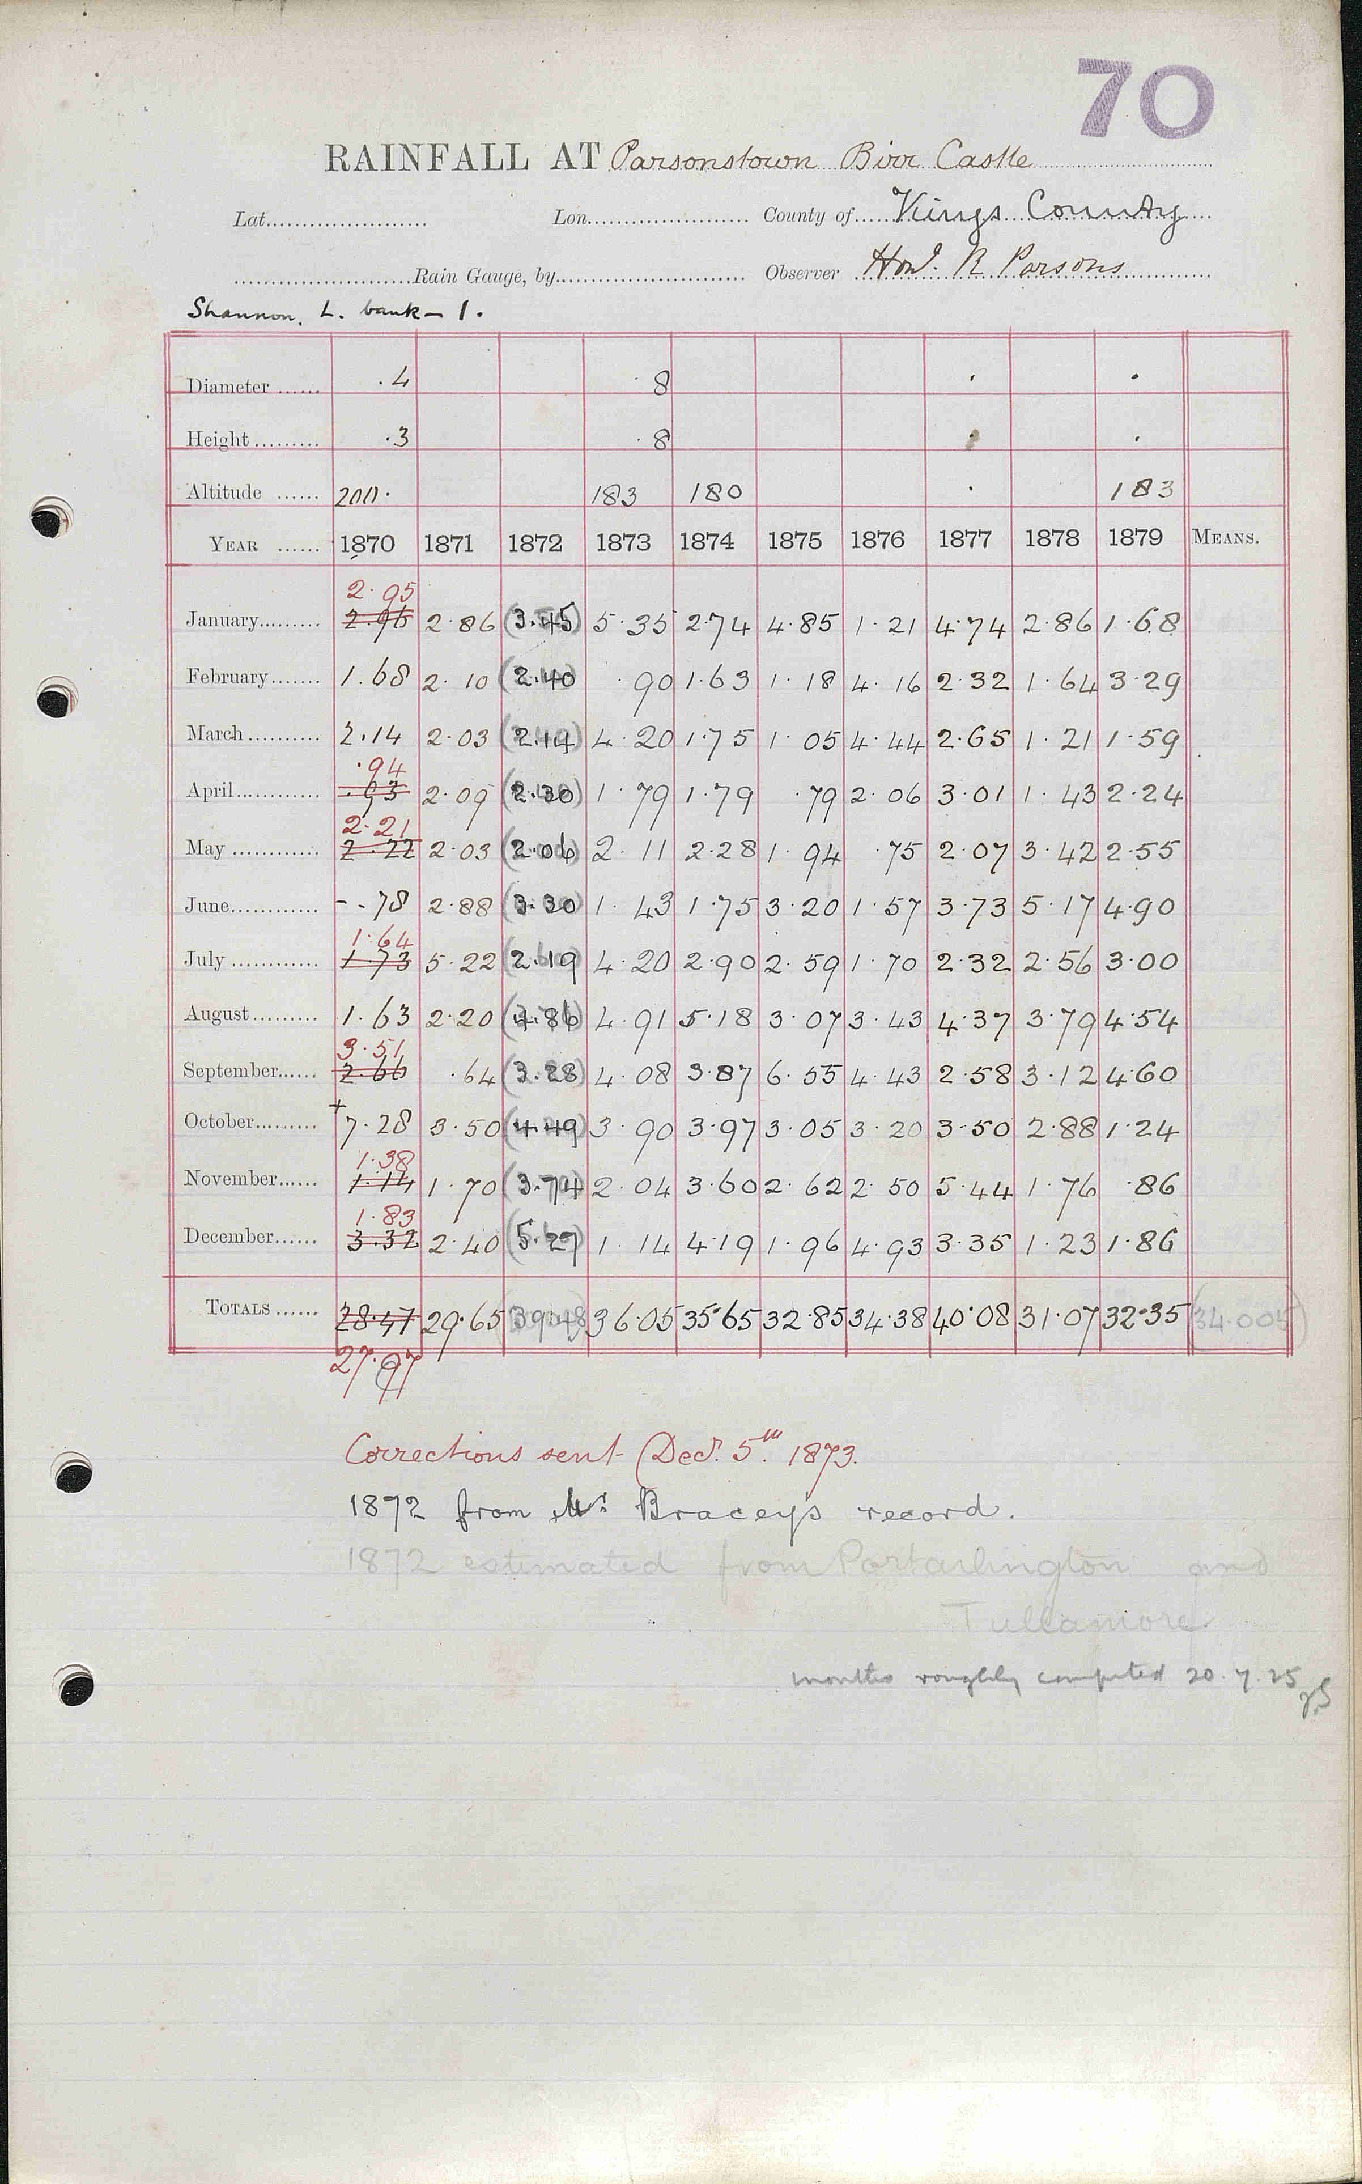 70
RAINFALL AT Parsonstown Birr Castle
Lat. Lon. County of Kings County
Rain Gauge, by Observer Honl. R Parsons
Shannon, L. bank – 1.
Diameter .4 8
Height .3 8
Altitude 200. 183 180 183
YEAR 1870 1871 1872 1873 1874 1875 1876 1877 1878 1879 MEANS.
2.95
January 2.96 2.86 (3.45) 5.35 2.74 4.85 1.21 4.74 2.86 1.68
February 1.68 2.10 (2.40) .90 1.63 1.18 4.16 2.32 1.64 3.29
March 2.14 2.03 (2.14) 4.20 1.75 1.05 4.44 2.65 1.21 1.59
.94
April .93 2.09 (2.30) 1.79 1.79 .79 2.06 3.01 1.43 2.24
2.21
May 2.22 2.03 (2.06) 2.11 2.28 1.94 .75 2.07 3.42 2.55
June -.78 2.88 (3.30) 1.43 1.75 3.20 1.57 3.73 5.17 4.90
1.64
July 1.73 5.22 (2.19) 4.20 2.90 2.59 1.70 2.32 2.56 3.00
August 1.63 2.20 (4.86) 4.91 5.18 3.07 3.43 4.37 3.79 4.54
3.51
September 2.66 .64 (3.28) 4.08 3.87 6.55 4.43 2.58 3.12 4.60
October +7.28 3.50 (4.49) 3.90 3.97 3.05 3.20 3.50 2.88 1.24
1.38
November 1.14 1.70 (3.74) 2.04 3.60 2.62 2.50 5.44 1.76 .86
1.83
December 3.32 2.40 (5.27) 1.14 4.19 1.96 4.93 3.35 1.23 1.86
TOTALS 28.47 29.65 39.48 36.05 35.65 32.85 34.38 40.08 31.07 32.35 (34.005)
27.97
Corrections sent Decr. 5th. 1873.
1872 from Mr Braceys record.
1872 estimated from Portarlington and
Tullamore
months roughly computed 20.7.25